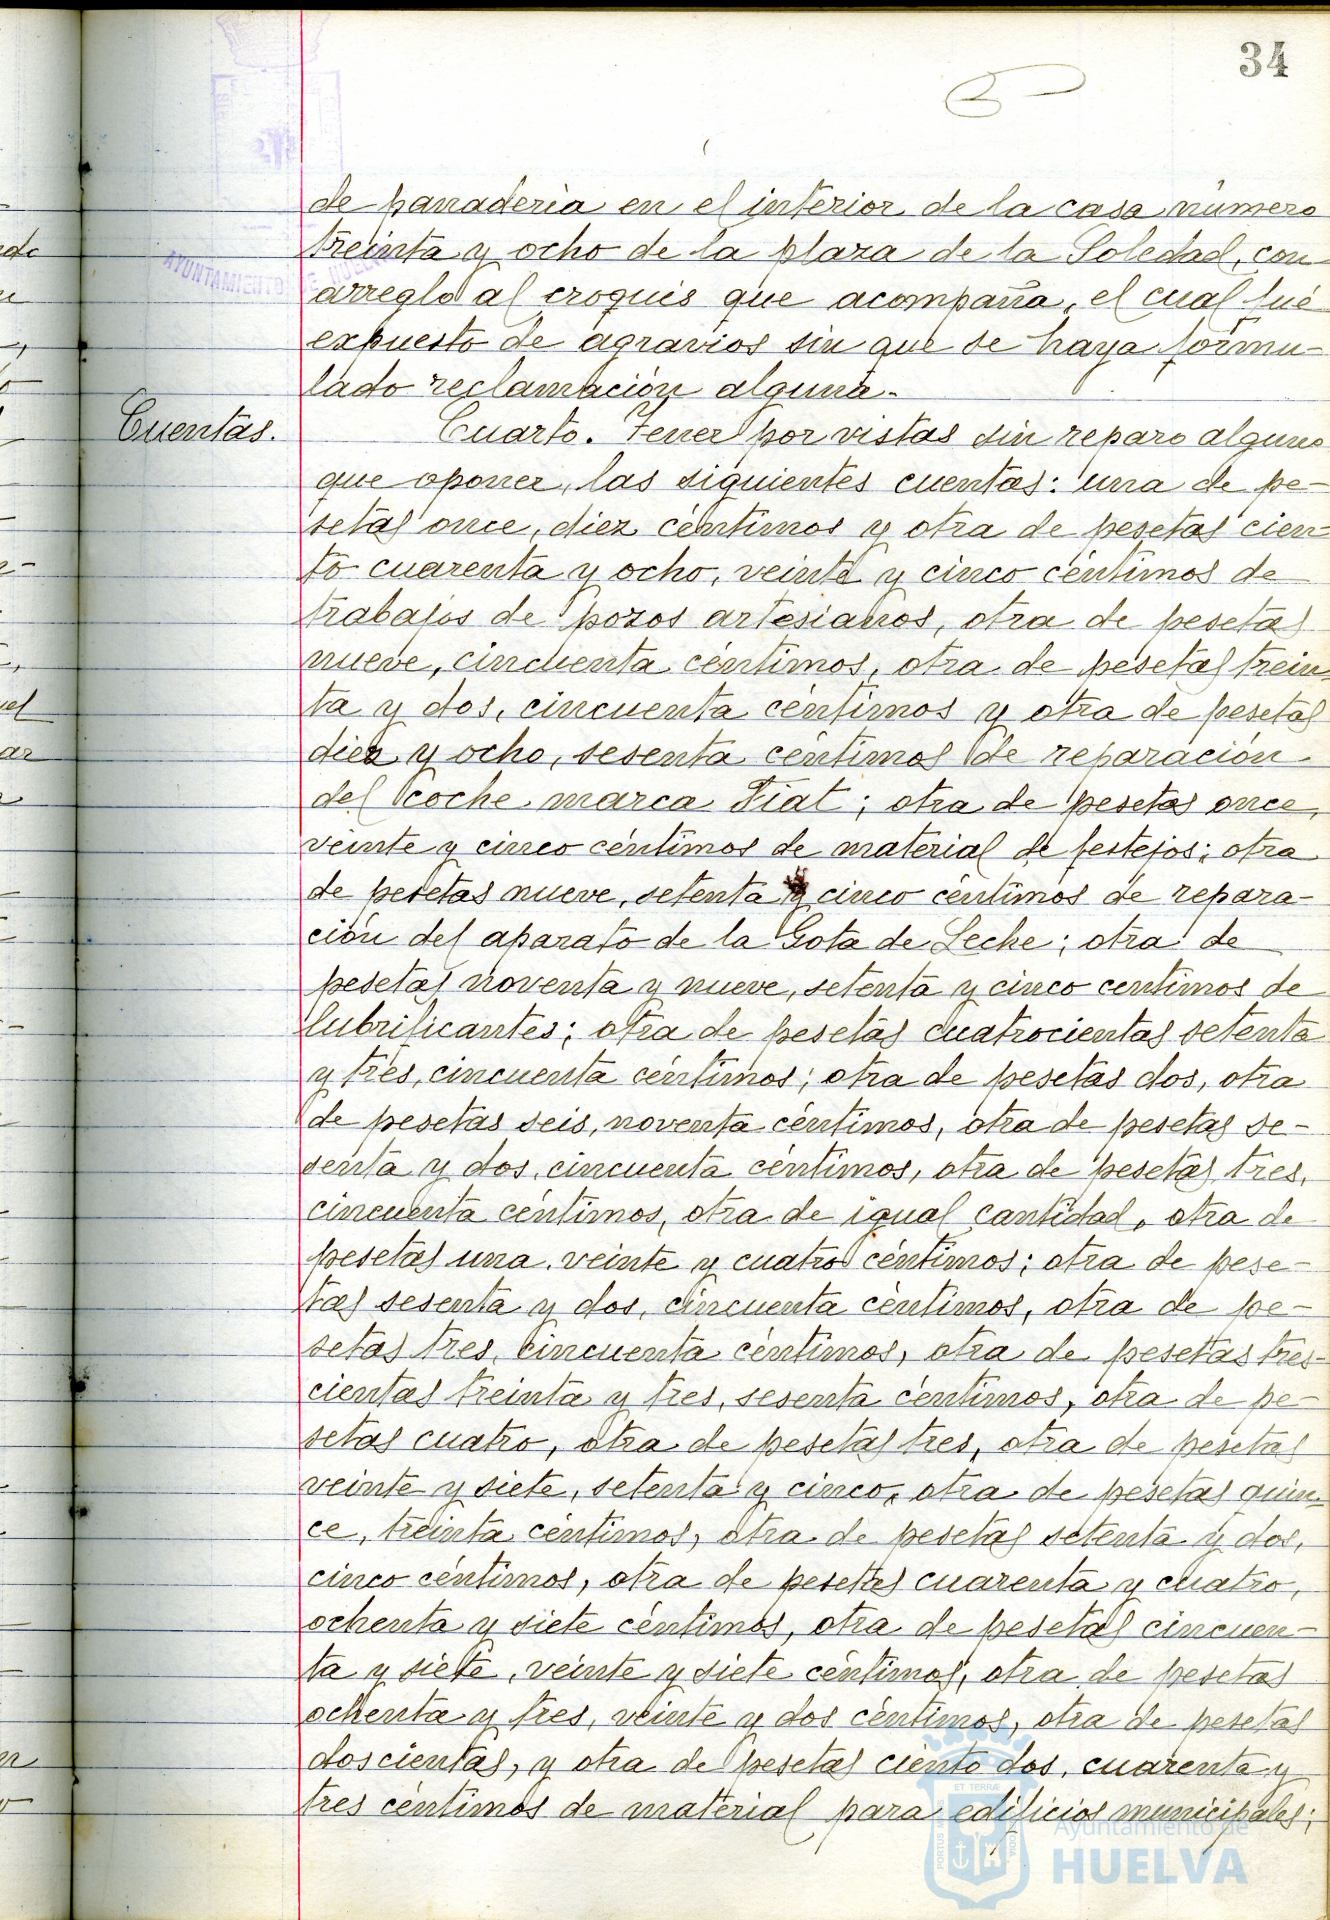 34
de panadería en el interior de la casa número
treinta y ocho de la plaza de la Soledad, con
AYUNTAMIENTO DE HUELVA
arreglo al croquis que acompaña, el cual fué
expuesto de agravios sin que se haya formu-
lado reclamación alguna.
Cuentas.
Cuarto. Tener por vistas sin reparo alguno
que oponer, las siguientes cuentas: una de pe-
setas once, diez céntimos y otra de pesetas cien-
to cuarenta y ocho, veinte y cinco céntimos de
trabajos de pozos artesianos, otra de pesetas
nueve, cincuenta céntimos, otra de pesetas trein-
ta y dos, cincuenta céntimos y otra de pesetas
diez y ocho, sesenta céntimos de reparación
del coche marca Fiat; otra de pesetas once,
veinte y cinco céntimos de material de festejos; otra
de pesetas nueve, setenta y cinco céntimos de repara-
ción del aparato de la Gota de Leche; otra de
pesetas noventa y nueve, setenta y cinco centimos de
lubrificantes; otra de pesetas cuatrocientas setenta
y tres, cincuenta céntimos; otra de pesetas dos, otra
de pesetas seis, noventa céntimos, otra de pesetas se-
senta y dos, cincuenta céntimos, otra de pesetas tres,
cincuenta céntimos, otra de igual cantidad, otra de
pesetas una, veinte y cuatro céntimos; otra de pese-
tas sesenta y dos, cincuenta céntimos, otra de pe-
setas tres, cincuenta céntimos, otra de pesetas tres-
cientas treinta y tres, sesenta céntimos, otra de pe-
setas cuatro, otra de pesetas tres, otra de pesetas
veinte y siete, setenta y cinco, otra de pesetas quin-
ce, treinta céntimos, otra de pesetas setenta y dos,
cinco céntimos, otra de pesetas cuarenta y cuatro,
ochenta y siete céntimos, otra de pesetas cincuen-
ta y siete, veinte y siete céntimos, otra de pesetas
ochenta y tres, veinte y dos céntimos, otra de pesetas
doscientas, y otra de pesetas ciento dos, cuarenta y
tres céntimos de material para edificios municipales;
Ayuntamiento de
HUELVA